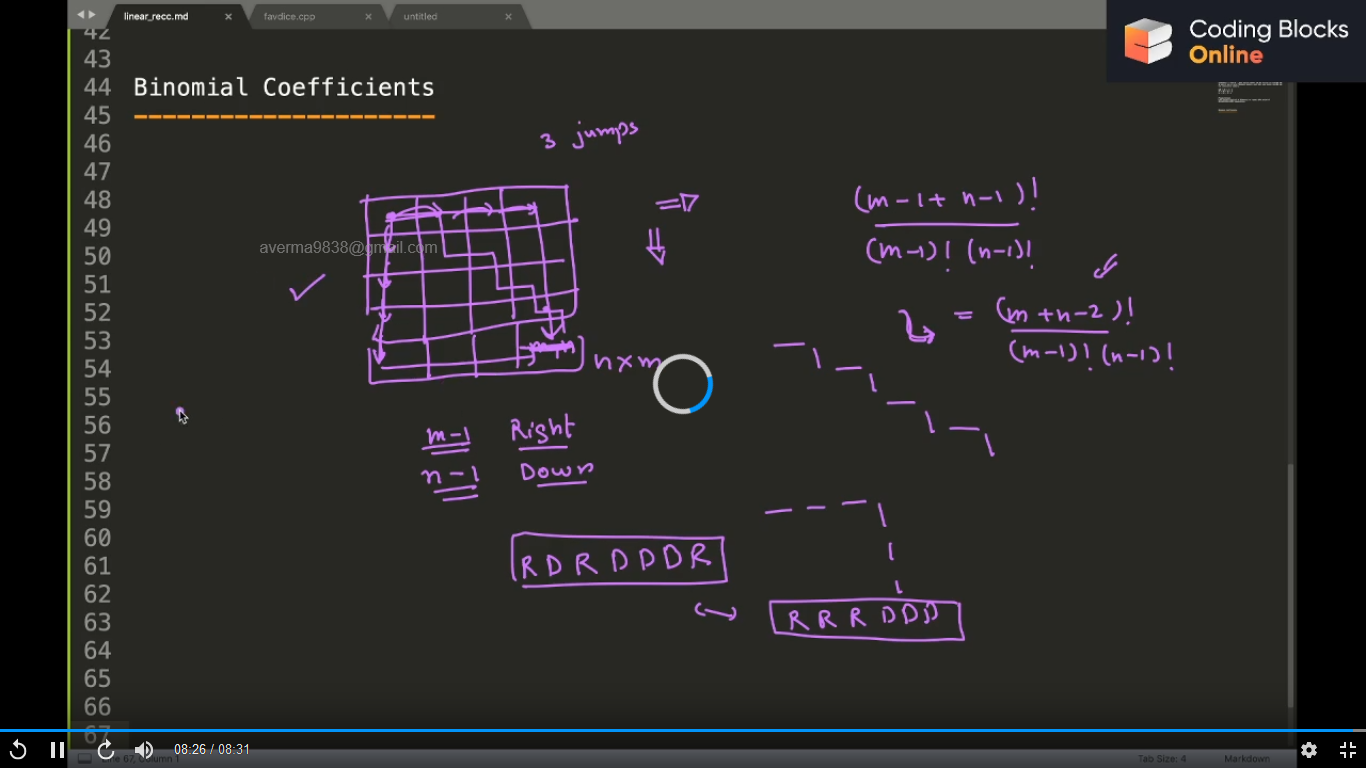 linear_recc.md
favdice.cpp
untitled
Coding Blocks
Online
42
43
44
Binomial Coefficients
45
46
47
48
49
50
51
52
53
54
55
56
57
58
59
60
61
62
63
64
65
66
67
3 jumps
averma9838@gmail.com
n×m
m-1 Right
n-1 Down
RDRDDDR
RRRDDD
(m-1+n-1)!
(m-1)! (n-1)!
= (m+n-2)!
(m-1)! (n-1)!
08:26 / 08:31
Line 67, Column 1
Tab Size: 4
Markdown